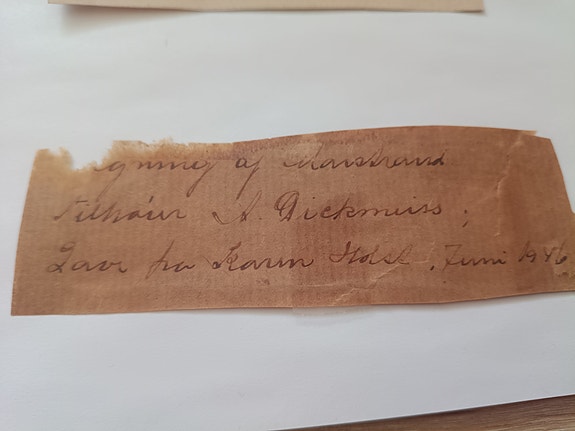 gning af Marstrand
Tilhører A. Dickmeiss.
Gave fra Karen Holst, Juni 1946